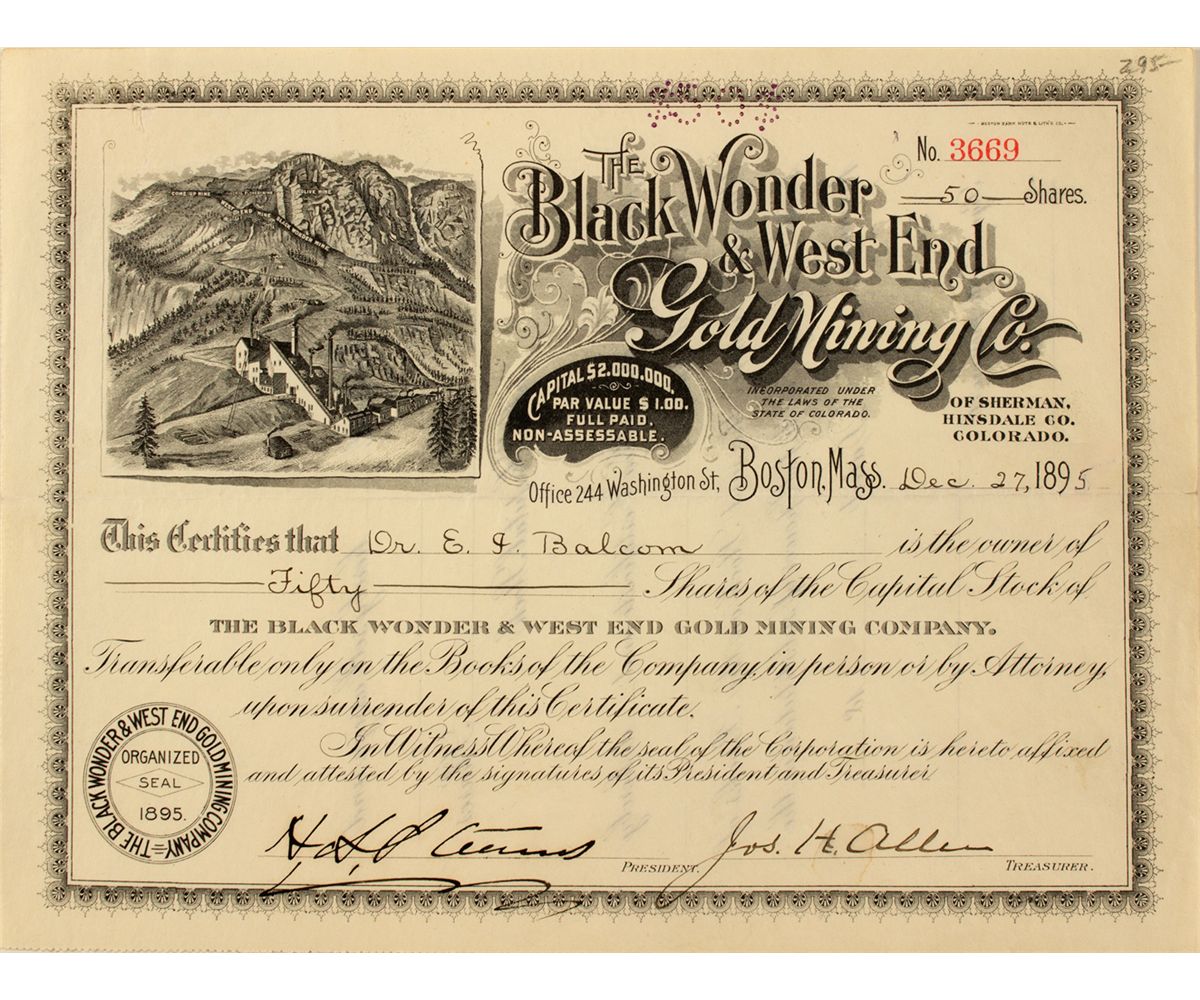 295—
BOSTON BANK NOTE & LITH'G. CO.
No. 3669
50 Shares.
THE
Black Wonder
& West End
Gold Mining Co.
COME-UP MINE
OLIVE MINE
WEST END MINE
CAPITAL $2.000.000.
PAR VALUE $1.00.
FULL PAID.
NON-ASSESSABLE.
INCORPORATED UNDER
THE LAWS OF THE
STATE OF COLORADO.
OF SHERMAN,
HINSDALE CO.
COLORADO.
Office 244 Washington St, Boston, Mass. Dec. 27, 1895
This Certifies that Dr. E. I. Balcom is the owner of
Fifty Shares of the Capital Stock of
THE BLACK WONDER & WEST END GOLD MINING COMPANY.
Transferable only on the Books of the Company, in person or by Attorney,
upon surrender of this Certificate.
In Witness Whereof the seal of the Corporation is hereto affixed
and attested by the signatures of its President and Treasurer
THE BLACK WONDER & WEST END GOLD MINING COMPANY
ORGANIZED
SEAL
1895.
PRESIDENT.
Jos. H. Allen
TREASURER.